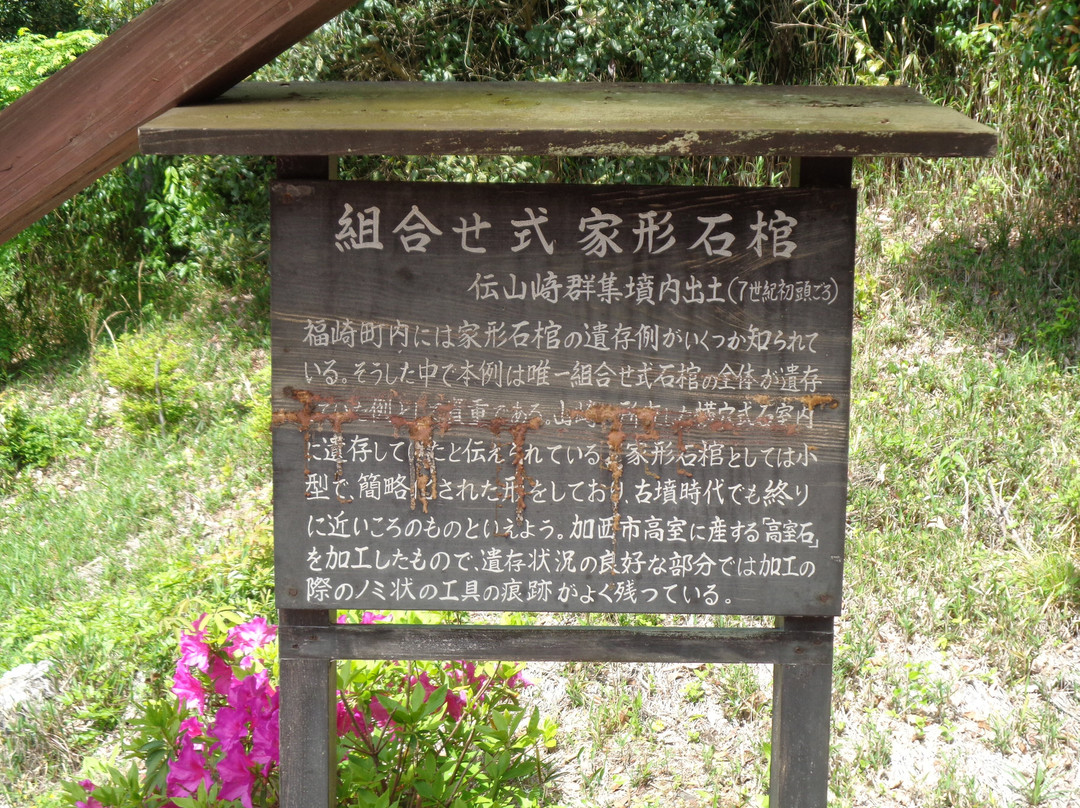 組合せ式 家形石棺
伝山崎群集墳内出土(7世紀初頭ごろ)
福崎町内には家形石棺の遺存例がいくつか知られて
いる。そうした中で本例は唯一組合せ式石棺の全体が遺存
例として貴重である。山崎 した横穴式石室内
に遺存して たと伝えられている。家形石棺としては小
型で、簡略化された形をしており、古墳時代でも終り
に近いころのものといえよう。加西市高室に産する「高室石」
を加工したもので、遺存状況の良好な部分では加工の
際のノミ状の工具の痕跡がよく残っている。